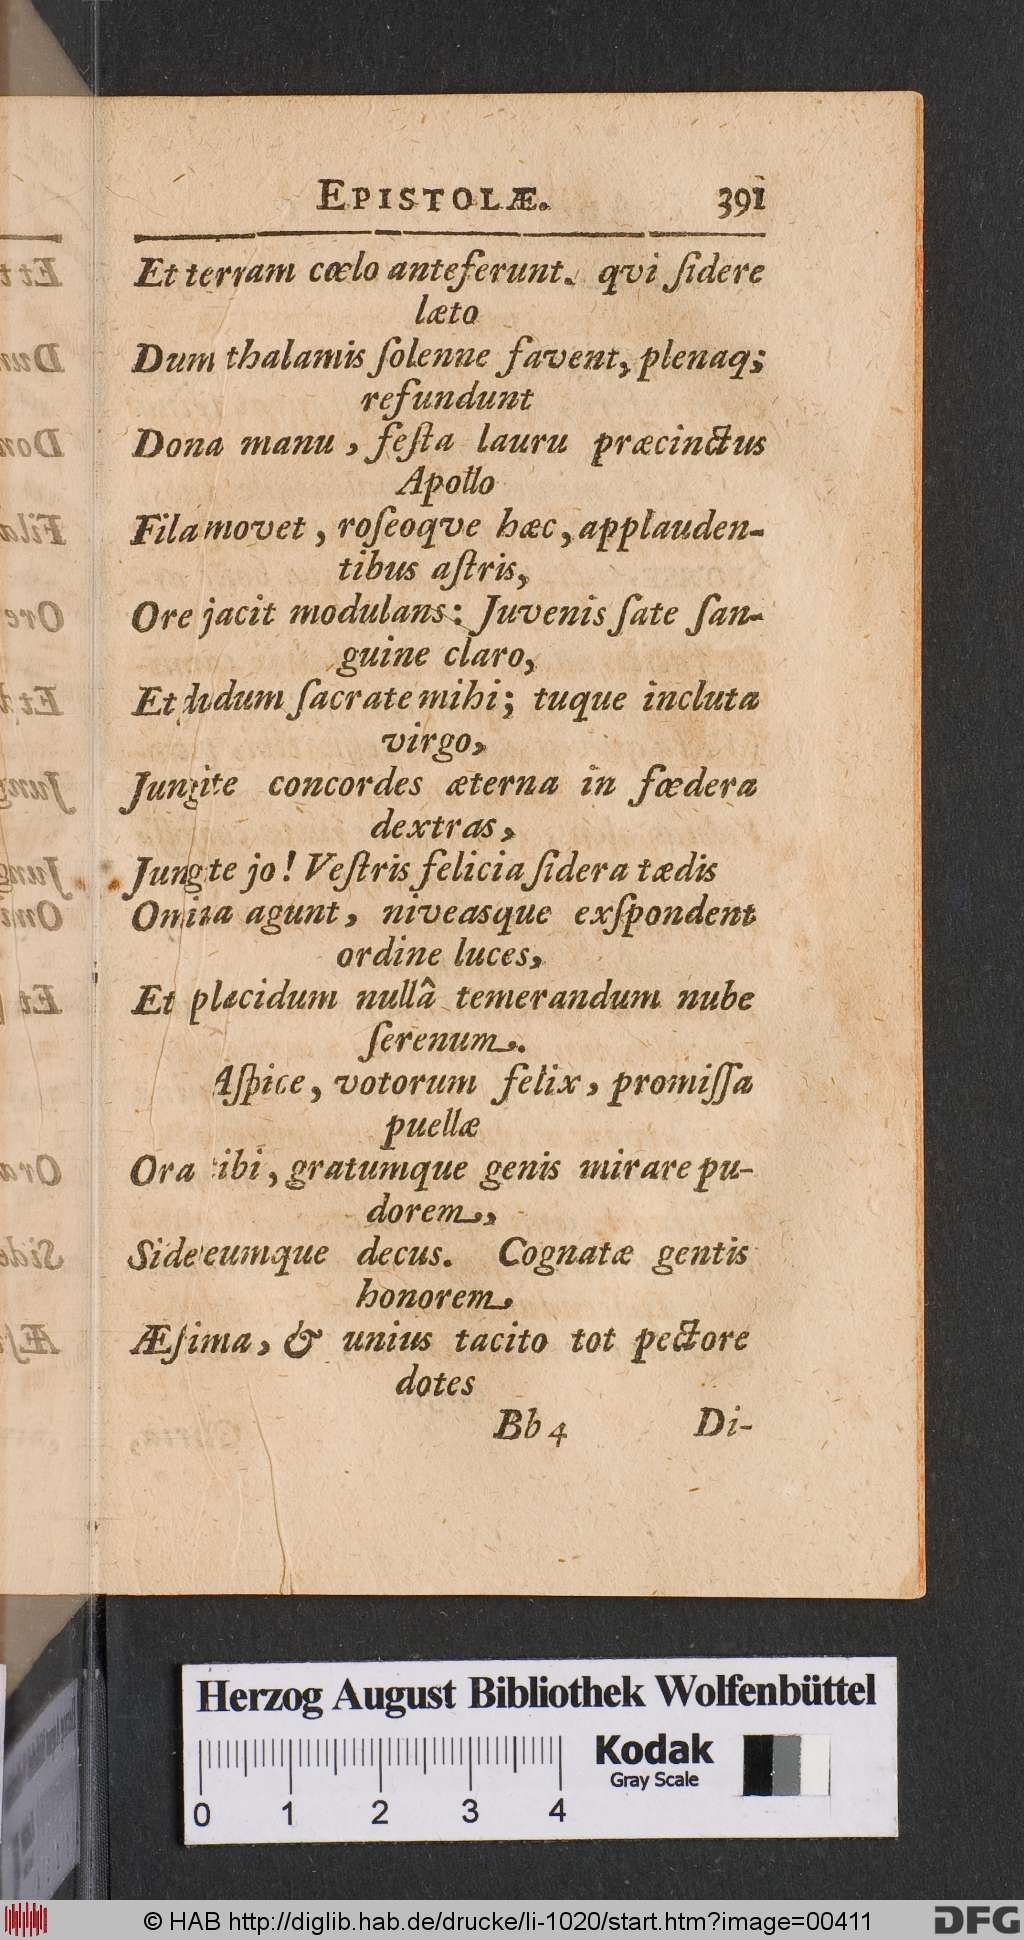 EPISTOLÆ. 391
Et terram cœlo anteferunt. qvi ſidere
læto
Dum thalamis ſolenne favent, plenaq;
refundunt
Dona manu, feſta lauru præcinctus
Apollo
Fila movet, roſeoqve hæc, applauden-
tibus aſtris,
Ore jacit modulans: Juvenis ſate ſan-
guine claro,
Et dudum ſacrate mihi; tuque incluta
virgo,
Jungite concordes æterna in fœdera
dextras,
Jungite jo! Veſtris felicia ſidera tædis
Omina agunt, niveasque exſpondent
ordine luces,
Et placidum nullâ temerandum nube
ſerenum.
Aſpice, votorum felix, promiſſa
puellæ
Ora tibi, gratumque genis mirare pu-
dorem,
Sidereumque decus. Cognatæ gentis
honorem,
Æſtima, & unius tacito tot pectore
dotes
Bb 4 Di-
Herzog August Bibliothek Wolfenbüttel
Kodak
Gray Scale
0 1 2 3 4
© HAB http://diglib.hab.de/drucke/li-1020/start.htm?image=00411
DFG